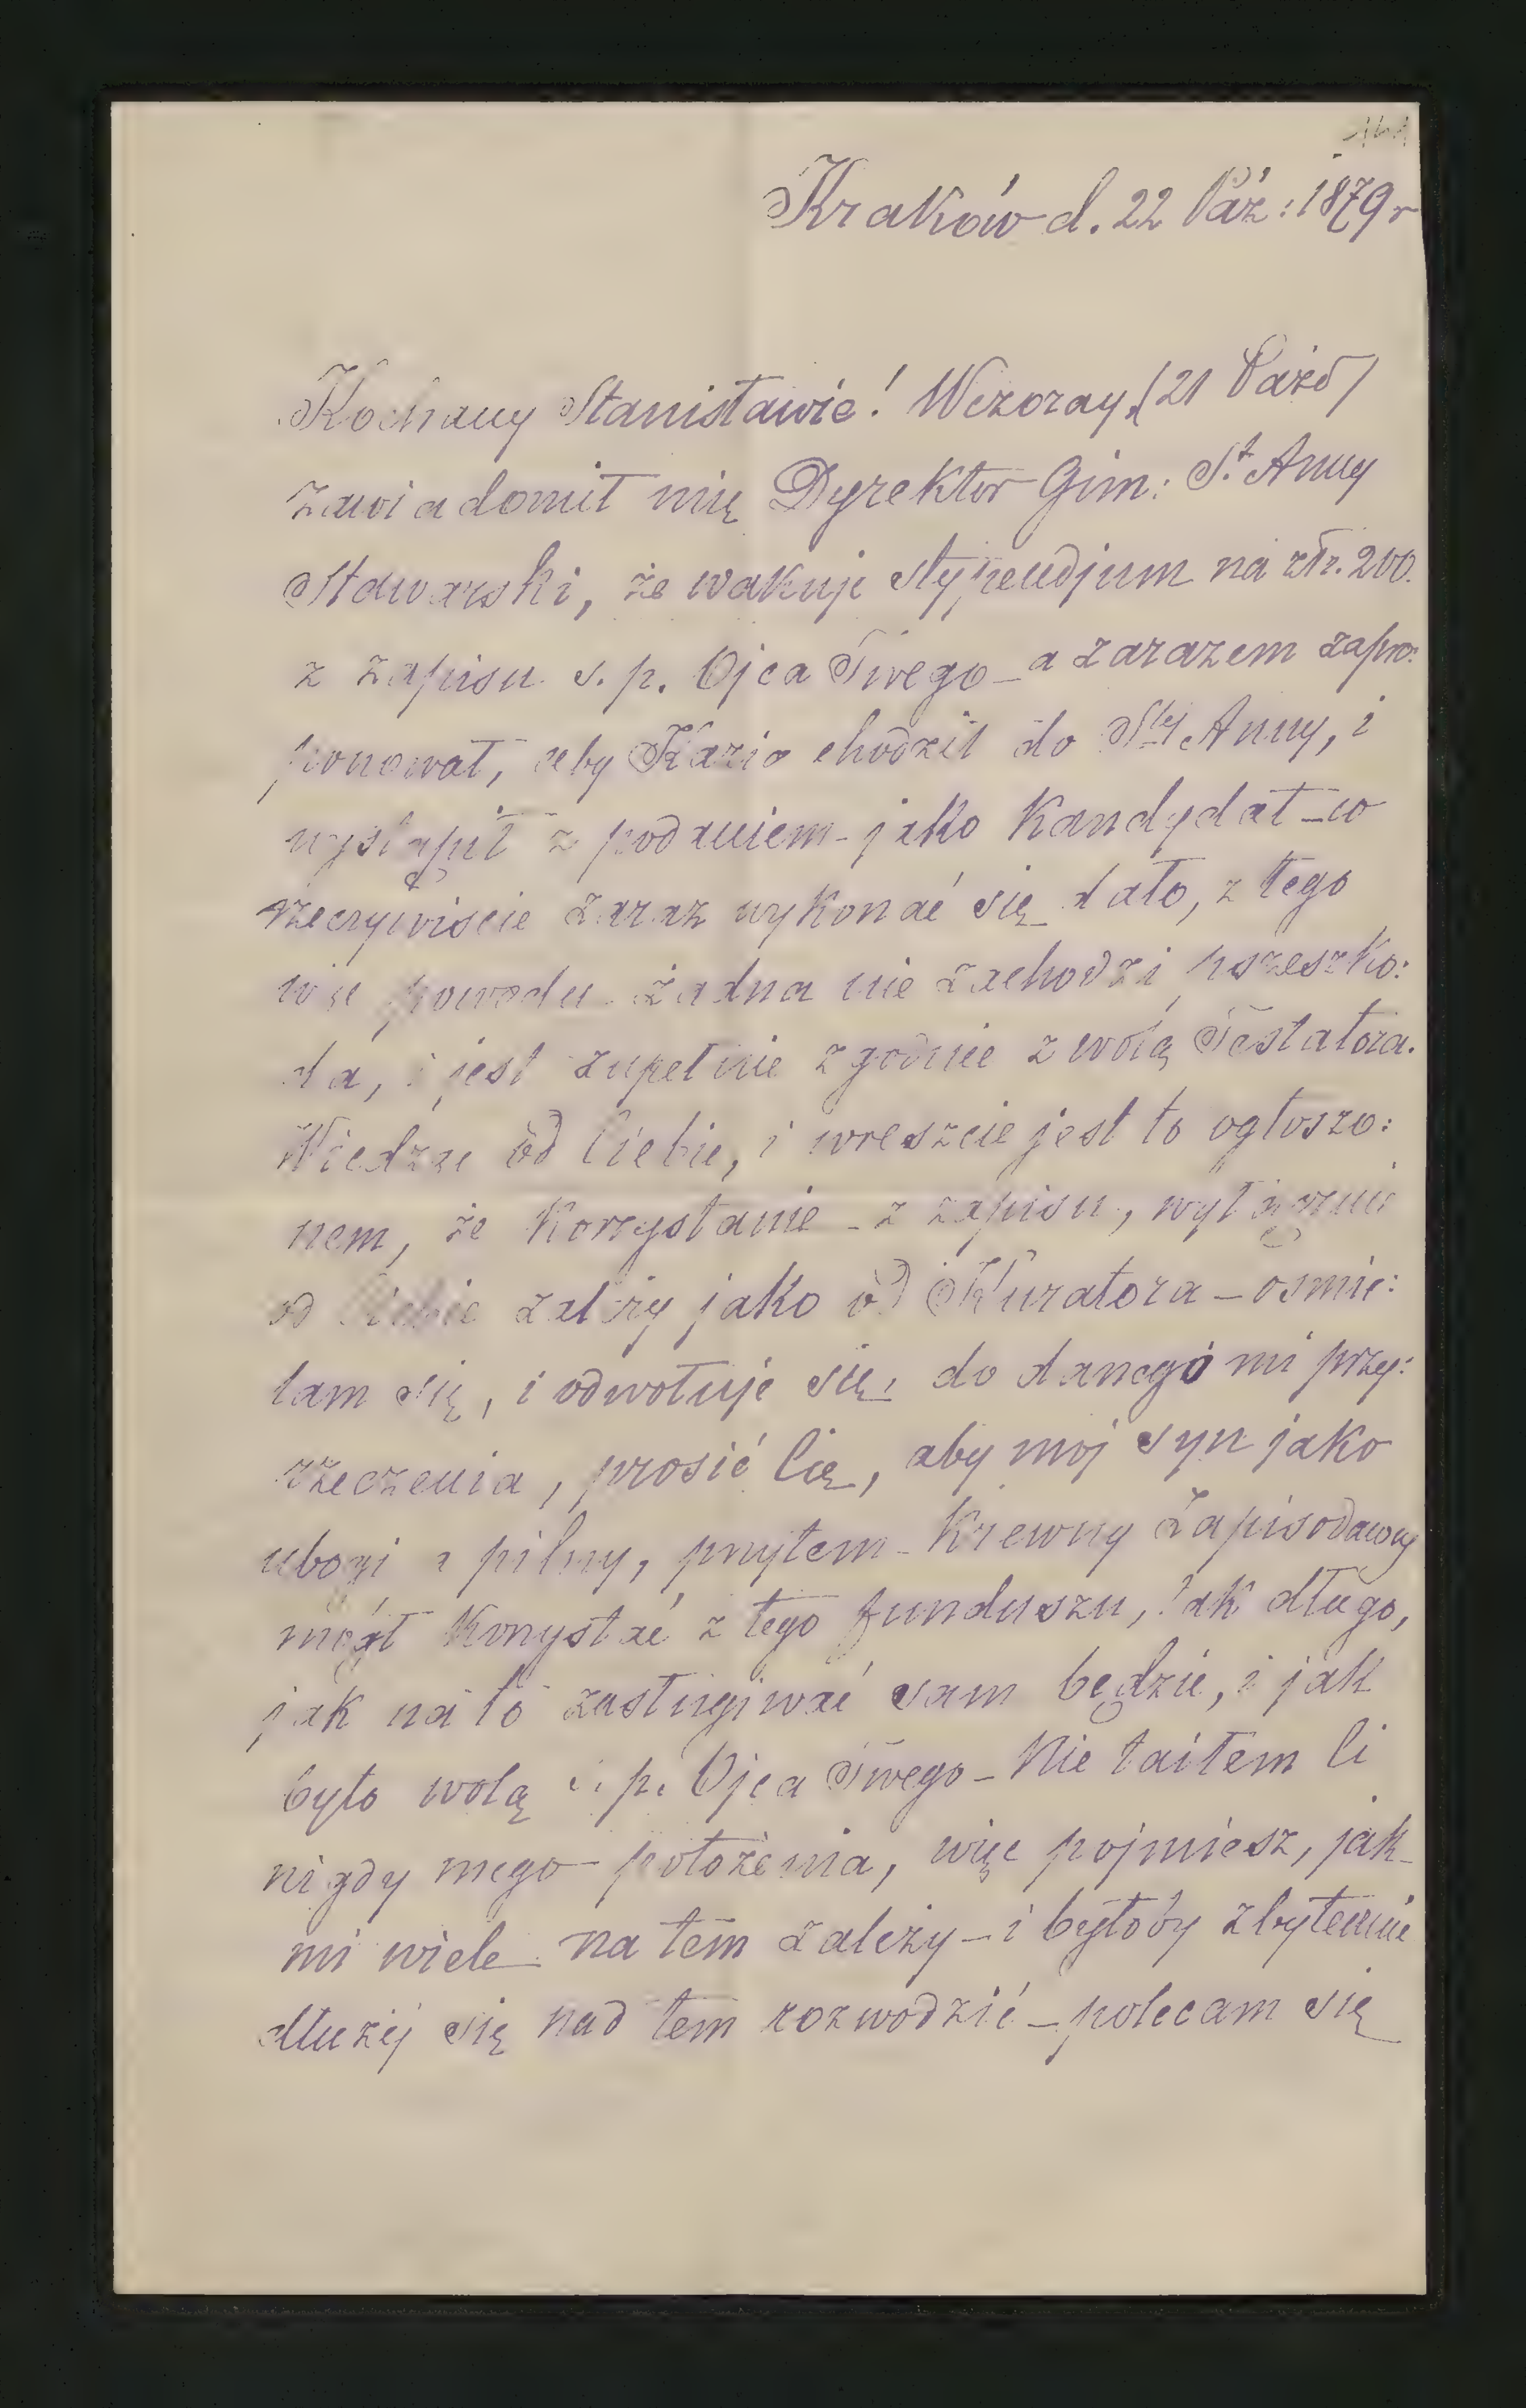 Kraków d. 22 Páź: 1879 r
Kochany Stanisławie! Wczoray (21 Paźd)
zawiadomił mię Dyrektor Gim: St. Anny
Stawarski, że wakuje stypendjum na złr. 200.
z zapisu s. p. Ojca Twego – a zarazem zapro:
ponował, żeby Kazio chodził do Stej Anny, i
wystąpił z podaniem – jako Kandydat – co
rzeczywiście zaraz wykonać się dało, z tego
więc powodu żadna nie zachodzi przeszko:
da, i jest zupełnie zgodnie z wolą Testatora.
Wiedząc od Ciebie, i wreszcie jest to ogłoszo:
nem, że korzystanie – z zapisu, wyłącznie
od Ciebie zależy jako od Kuratora – ośmie:
lam się, i odwołuję się, do danego mi przy:
rzeczenia, prosić Cię, aby mój syn jako
ubogi a pilny, przytem – Krewny Zapisodawcy
mógł korzystać z tego funduszu, tak długo,
jak na to zasługiwać sam będzie, i jak
było wolą ś. p. Ojca Twego – Nie taiłem Ci
nigdy mego położenia, więc pojmiesz, jak –
mi wiele na tem zależy – i byłoby zbytecznie
dłużéj się nad tem rozwodzić – polecam się